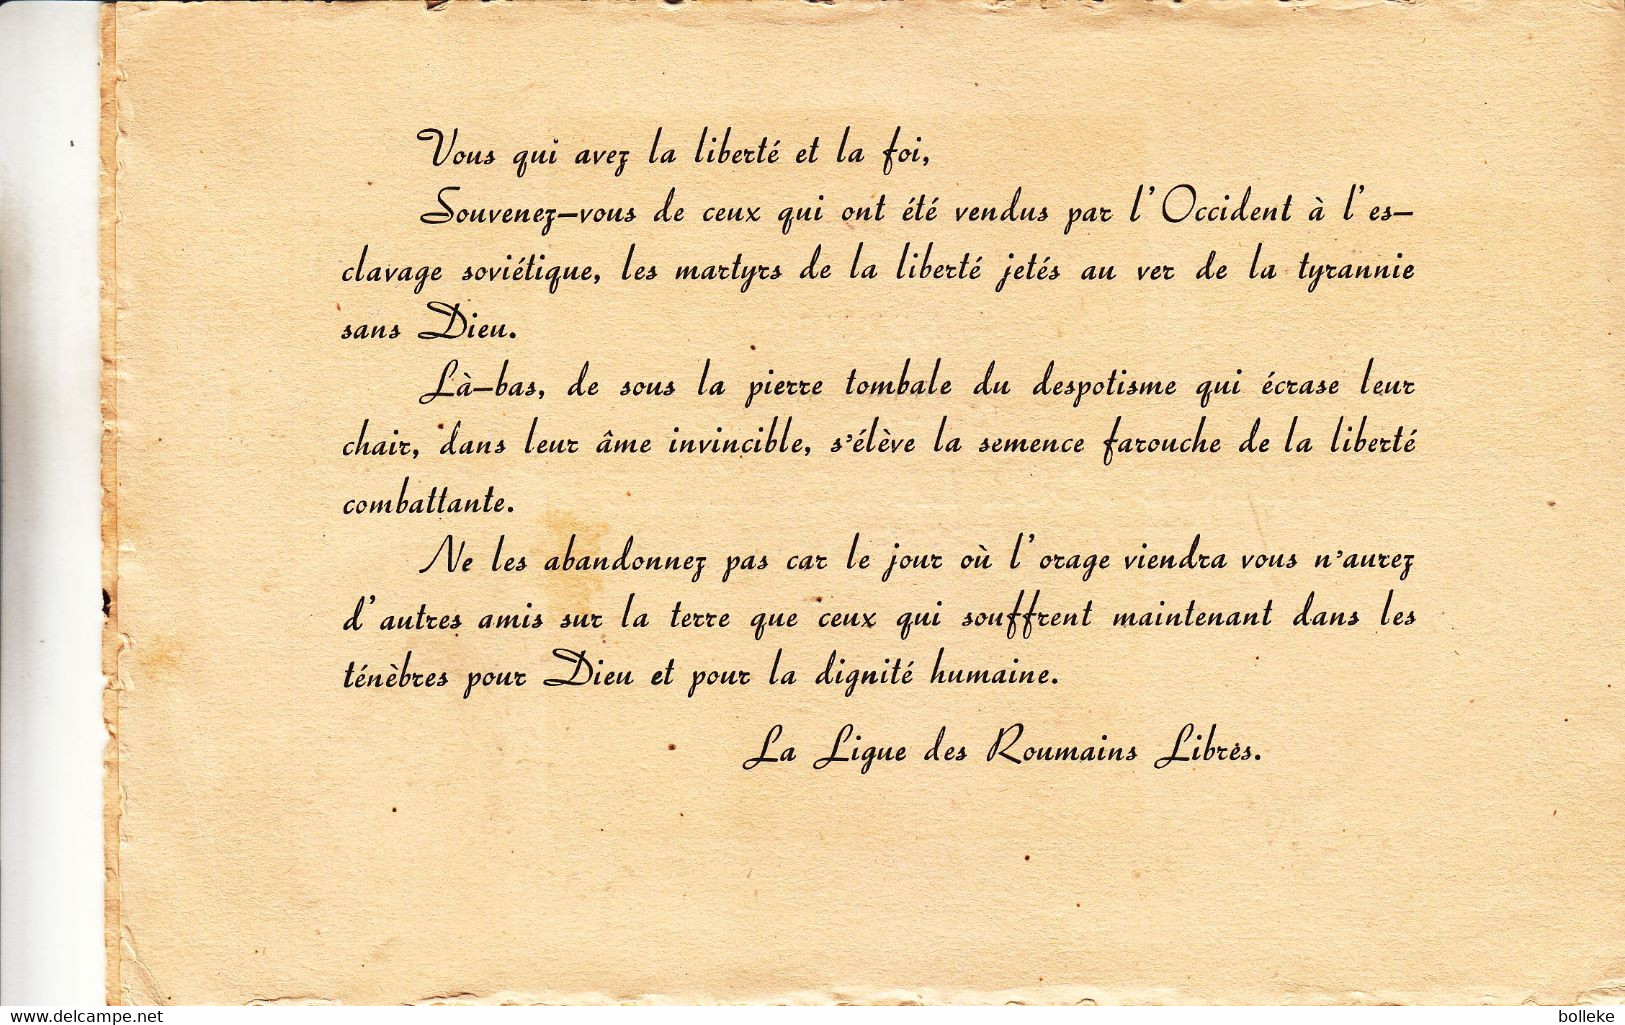 Vous qui avez la liberté et la foi,
Souvenez-vous de ceux qui ont été vendus par l'Occident à l'es-
clavage soviétique, les martyrs de la liberté jetés au ver de la tyrannie
sans Dieu.
Là-bas, de sous la pierre tombale du despotisme qui écrase leur
chair, dans leur âme invincible, s'élève la semence farouche de la liberté
combattante.
Ne les abandonnez pas car le jour où l'orage viendra vous n'aurez
d'autres amis sur la terre que ceux qui souffrent maintenant dans les
ténèbres pour Dieu et pour la dignité humaine.
La Ligue des Roumains Libres.
www.delcampe.net
bolleke